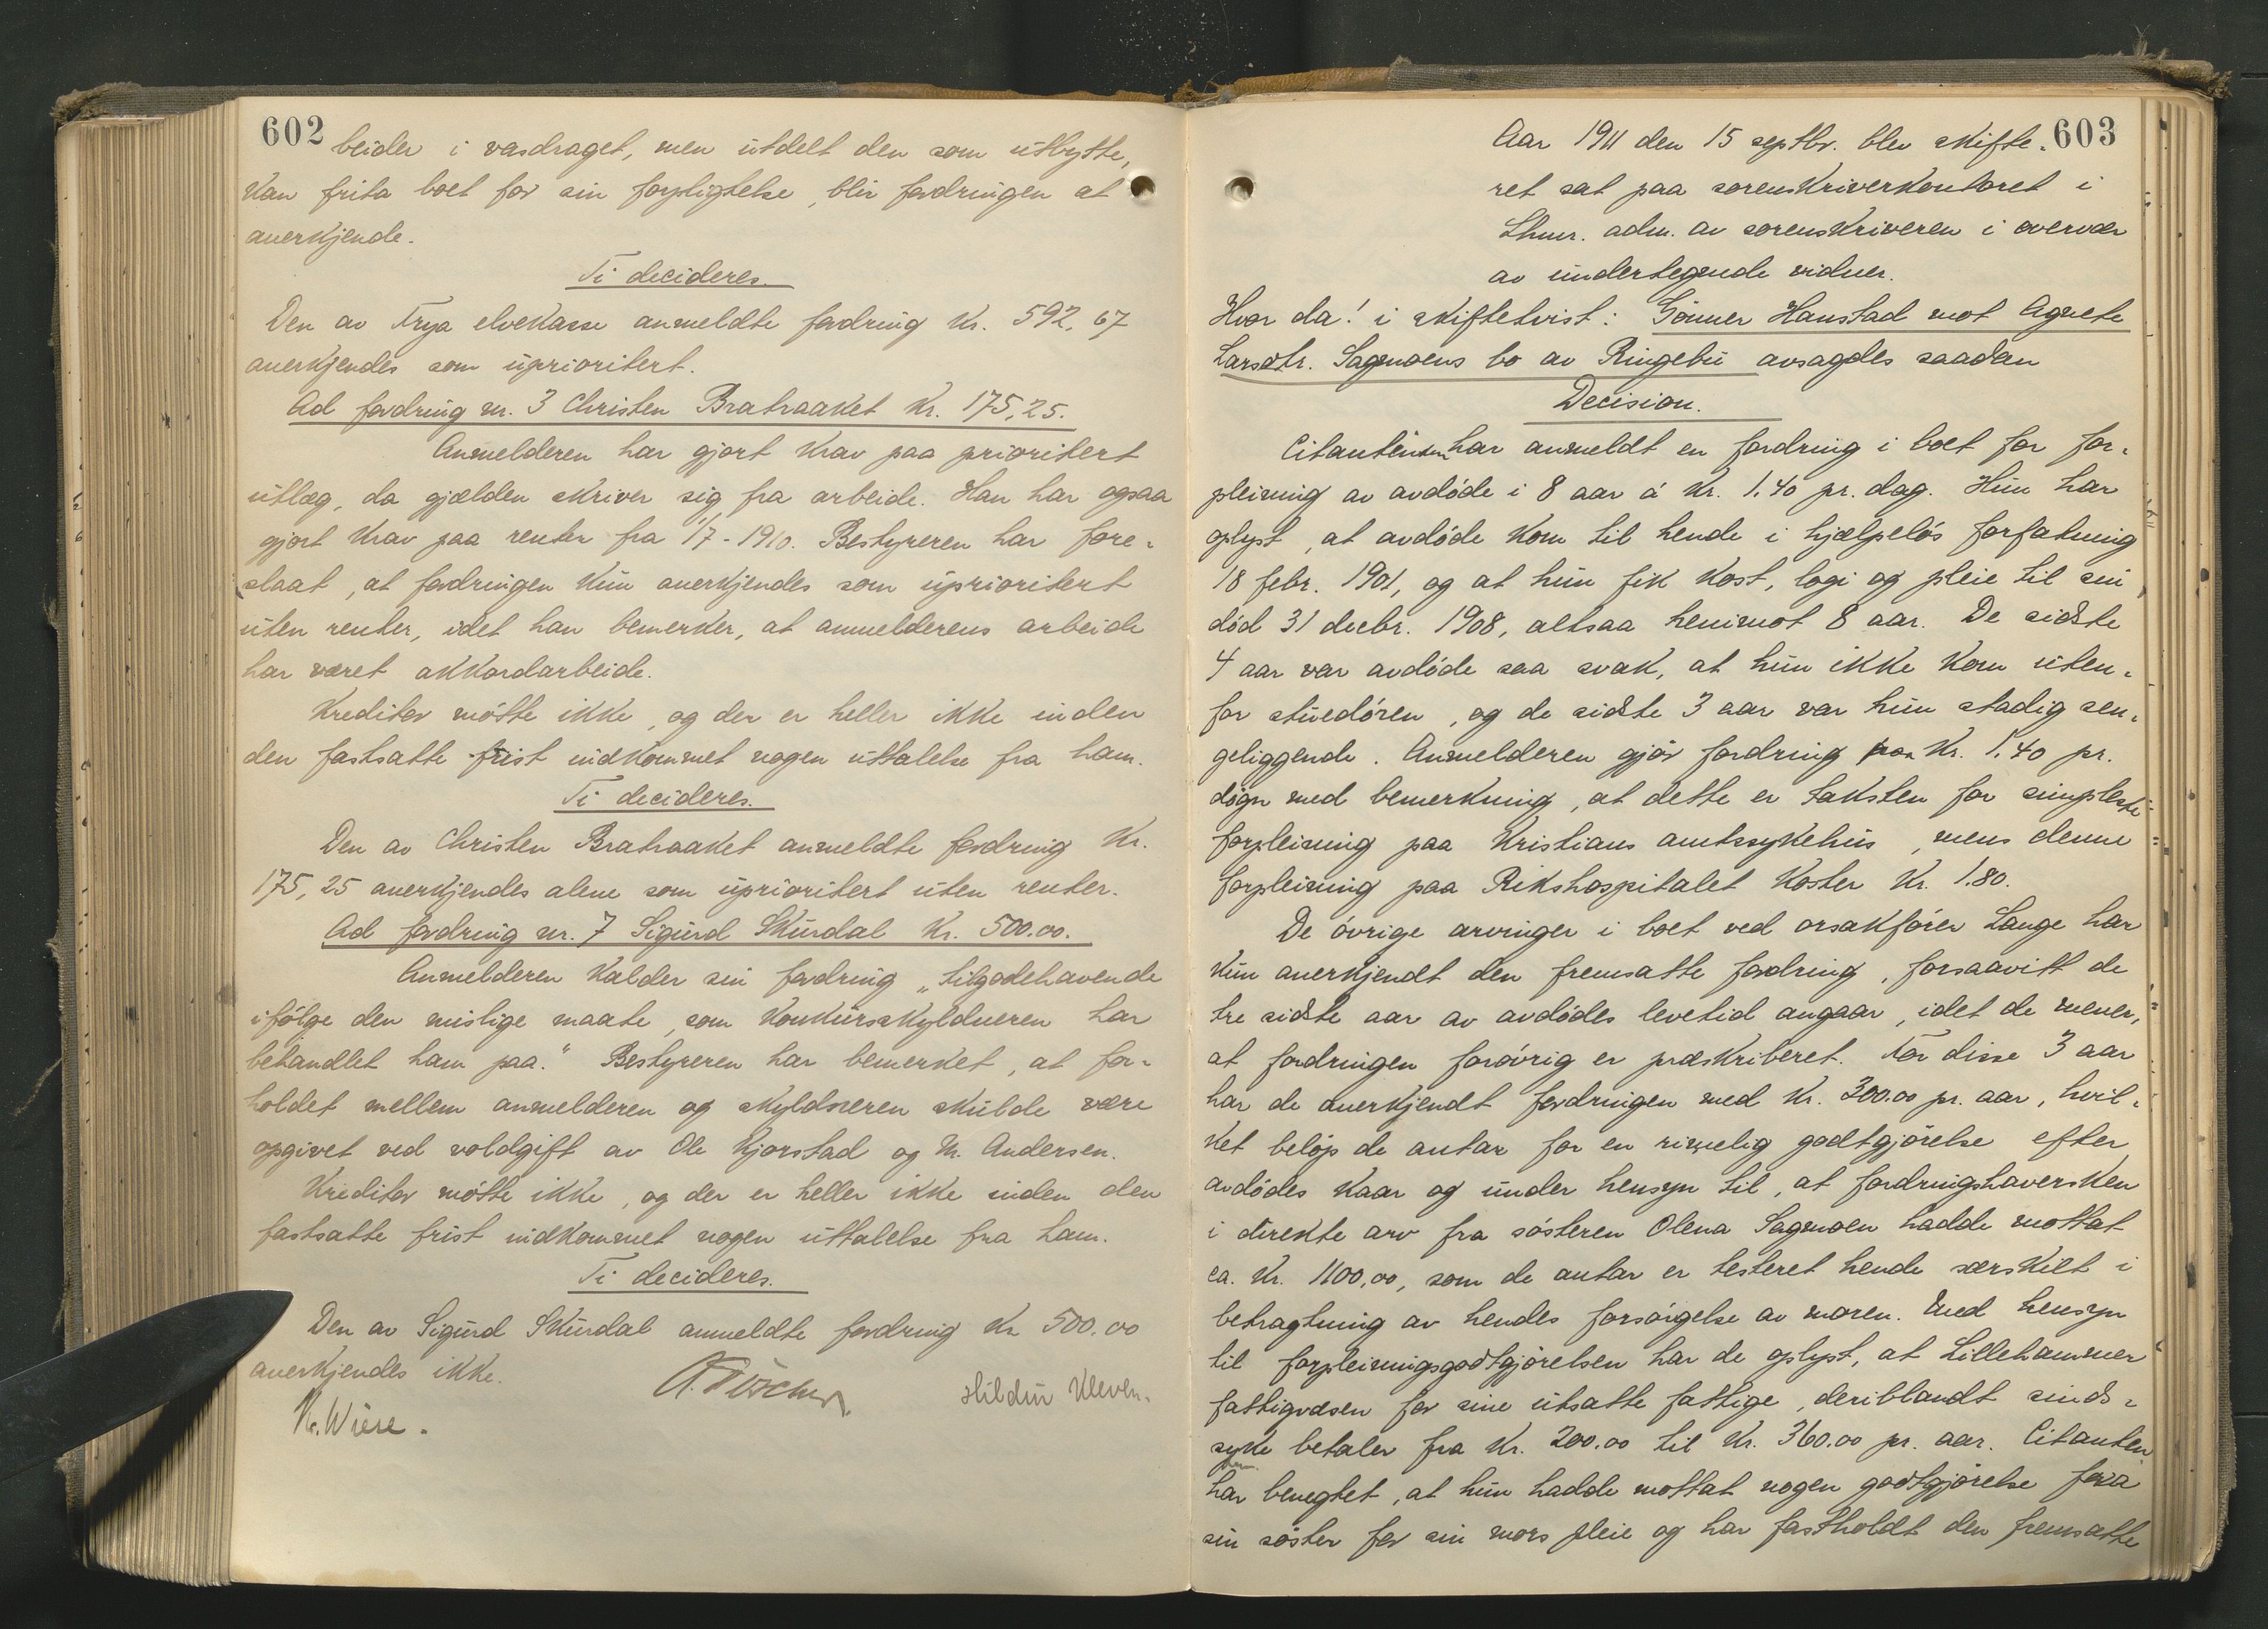 602
beider i vasdraget, men utdelt den som utbytte,
kan frita boet for sin forpligtelse, blir fordringen at
anerkjende.
Ti decideres.
Den av Frya elvekasse anmeldte fordring kr. 592,67
anerkjendes som uprioritert.
Ad fordring nr. 3 Christen Bratraaket kr. 175,25.
Anmelderen har gjort krav paa prioritert
utlæg, da gjælden skriver sig fra arbeide. Han har ogsaa
gjort krav paa renter fra 1/7-1910. Bestyreren har fore-
slaat, at fordringen kun anerkjendes som uprioritert
uten renter, idet han bemerker, at anmelderens arbeide
har været akkordarbeide.
Kreditor møtte ikke, og der er heller ikke inden
den fastsatte frist indkommet nogen uttalelse fra ham.
Ti decideres.
Den av Christen Bratraaket anmeldte fordring kr.
175,25 anerkjendes alene som uprioritert uten renter.
Ad fordring nr. 7 Sigurd Skurdal kr. 500.00.
Anmelderen kalder sin fordring „tilgodehavende
ifølge den mislige maate, som konkursskyldneren har
behandlet ham paa." Bestyreren har bemerket, at for-
holdet mellem anmelderen og skyldneren skulde være
opgivet ved voldgift av Ole Kjorstad og M. Andersen.
Kreditor møtte ikke, og der er heller ikke inden den
fastsatte frist indkommet nogen uttalelse fra ham.
Ti decideres.
Den av Sigurd Skurdal anmeldte fordring kr 500.00
anerkjendes ikke.
Hildur Kleven.
Kr. Wiese.
603
Aar 1911 den 15 septbr. blev skifte-
ret sat paa sorenskriverkontoret i
Lhmr. adm. av sorenskriveren i overvær
av undertegnede vidner.
Hvor da! i skiftetvist: Gunner Hanstad mot Agnete
Larsdtr. Sagmoens bo av Ringebu avsagdes saadan
Decision.
Citantinden har anmeldt en fordring i boet for for-
pleining av avdøde i 8 aar á kr. 1.40 pr. dag. Hun har
oplyst, at avdøde kom til hende i hjælpeløs forfatning
18 febr. 1901, og at hun fik kost, logi og pleie til sin
død 31 decbr. 1908, altsaa henimot 8 aar. De sidste
4 aar var avdøde saa svak, at hun ikke kom uten-
for stuedøren, og de sidste 3 aar var hun stadig sen-
geliggende. Anmelderen gjør fordring paa kr. 1.40 pr.
døgn med bemerkning, at dette er taksten for simpleste
forpleining paa Kristians amtssykehus, mens denne
forpleining paa Rikshospitalet koster kr. 1.80.
De øvrige arvinger i boet ved orsakfører Lange har
kun anerkjendt den fremsatte fordring, forsaavitt de
tre sidste aar av avdødes levetid angaar, idet de mener,
at fordringen forøvrig er præskriberet. For disse 3 aar
har de anerkjendt fordringen med kr. 300.00 pr. aar, hvil-
ket beløp de antar for en rimelig godtgjørelse efter
avdødes kaar og under hensyn til, at fordringshaversken
i direkte arv fra søsteren Olena Sagmoen hadde mottat
ca. kr. 1100,00, som de antar er testeret hende særskilt i
betragtning av hendes forsørgelse av moren. Med hensyn
til forpleiningsgodtgjørelsen har de oplyst, at Lillehammer
fattigvæsen for sine utsatte fattige, deriblandt sinds-
syke betaler fra kr. 200.00 til kr. 360.00 pr. aar. Citantin
den har benegtet, at hun hadde mottat nogen godtgjørelse fra
sin søster for sin mors pleie og har fastholdt den fremsatte